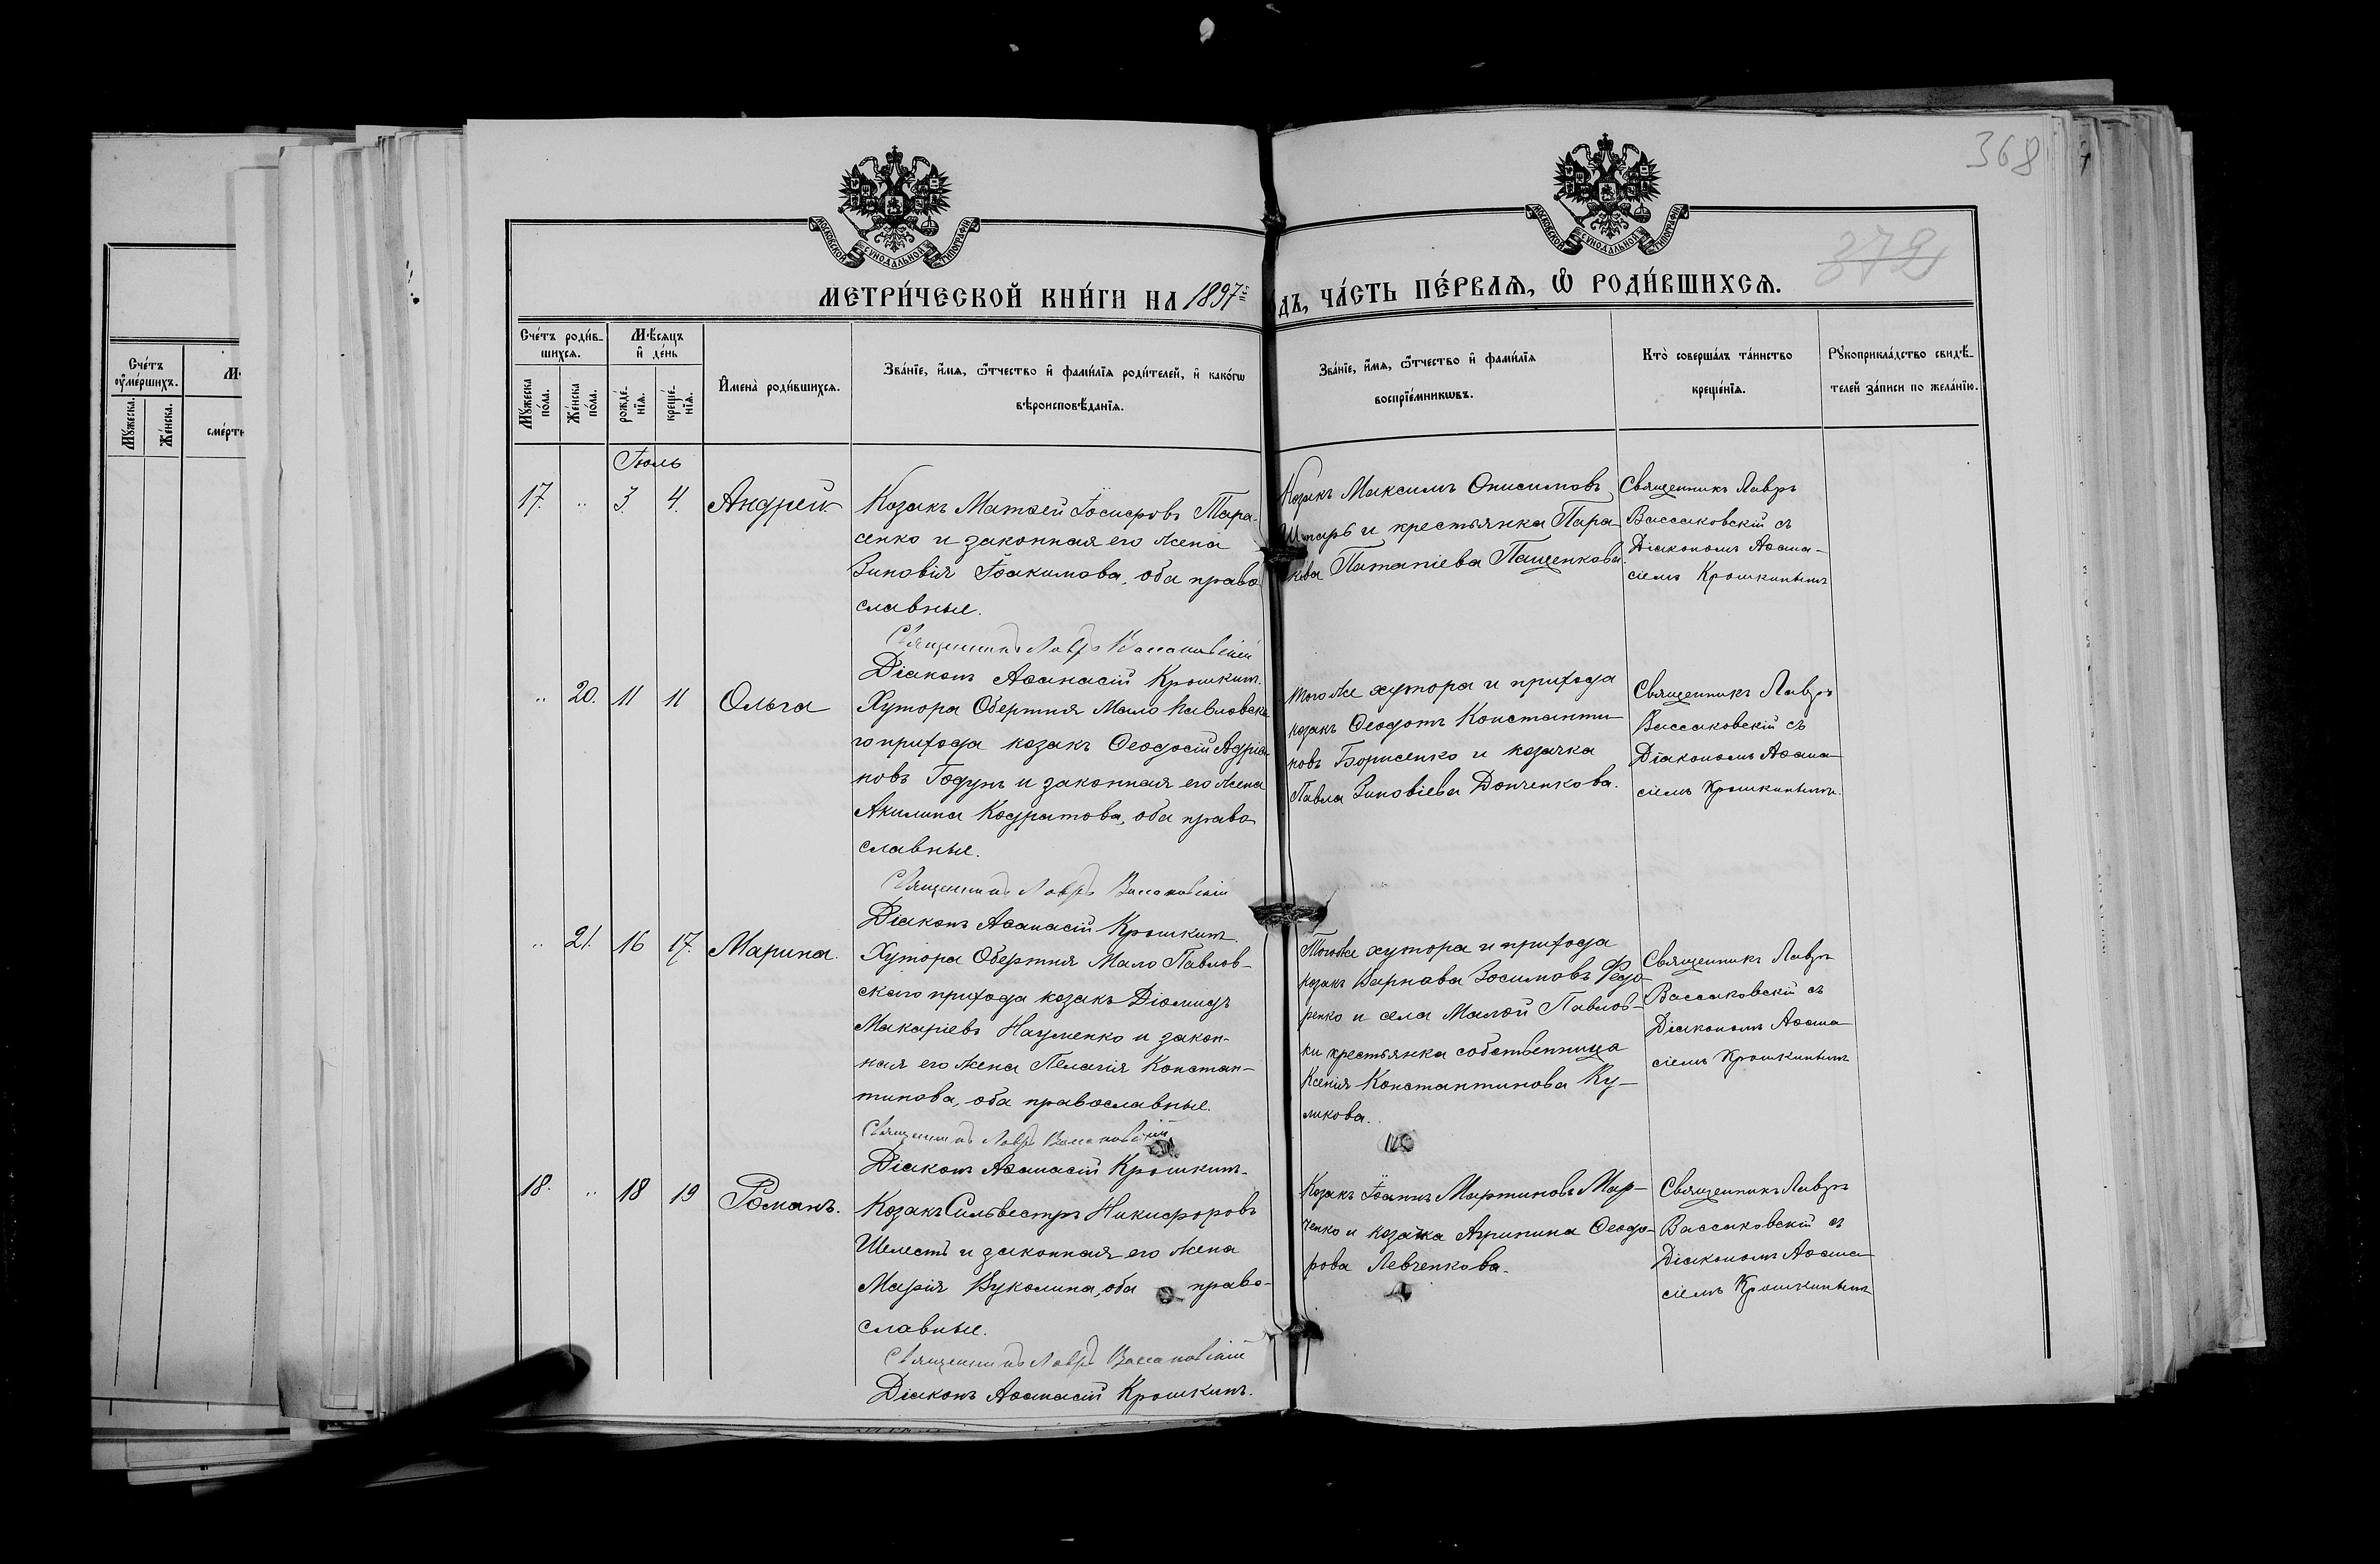 368
МОСКОВСКОЙ СѴНОДАЛЬНОЙ ТИПОГРАФІИ
МОСКОВСКОЙ СѴНОДАЛЬНОЙ ТИПОГРАФІИ
372
МЕТРИ́ЧЕСКОЙ КНИ́ГИ НА 1897й
ДЪ, ЧА́СТЬ ПЕ́РВАѦ, Ѿ РОДИ́ВШИХСѦ.
Сче́тъ роди́в-
шихсѧ.
Мѣ́сѧцъ
и҆ де́нь
И҆мена̀ роди́вшихсѧ.
Зва́нїе, и҆́мѧ, ѻ҆́тчество и҆ фами́лїѧ роди́телей, и҆ како́гѡ
вѣроисповѣ́данїѧ.
Зва́нїе, и҆́мѧ, ѻ҆́тчество и҆ фами́лїѧ
воспрїе́мникѡвъ.
Кто̀ соверша́лъ та́инство
креще́нїѧ.
Рꙋкоприкла́дство свидѣ́-
телей за́писи по жела́нїю.
Мꙋ́жеска
по́ла.
Же́нска
по́ла.
рожде́-
нїѧ.
креще́-
нїѧ.
Сче́тъ
ᲂу҆ме́ршихъ.
Мꙋ́жеска.
Же́нска.
сме́рти
Іюль
17. " 3. 4. Андрей
Козакъ Матѳей Іосифовъ Тара-
сенко и законная его жена
Зиновія Іоакимова, оба право
славные.
Священникъ Лавръ Вассаковскій
Діаконъ Аѳанасій Крошкинъ.
Козакъ Максимъ Онисимовъ
и крестьянка Пара-
Патапіева Пащенкова.
Священникъ Лавръ
Вассаковскій съ
Діакономъ Аѳана-
сіемъ Крошкинымъ
" 20. 11 11 Ольга
Хутора Обертня Мало Павловска
го прихода козакъ Ѳеодосій Адріа
новъ Годунъ и законная его жена
Акилина Кодратова, оба право
славные.
Священникъ Лавръ Вассаковскій
Діаконъ Аѳанасій Крошкинъ.
того же хутора и прихода
козакъ Ѳеодотъ Константи-
новъ Борисенко и козачка
Павла Зиновіева Донченкова.
Священникъ Лавръ
Вассаковскій съ
Діакономъ Аѳана-
сіемъ Крошкинымъ.
" 21. 16 17. Марина.
Хутора Обертня Мало Павлов-
скаго прихода козакъ Діомидъ
Макаріевъ Науменко и закон-
ная его жена Пелагія Констан-
тинова, оба православные.
Священникъ Лавръ Вассаковскій
Діаконъ Аѳанасій Крошкинъ.
Тогоже хутора и прихода
козакъ Варнава Зосимовъ Федо-
ренко и села Малой Павлов-
ки крестьянка собственница
Ксенія Константинова Ку-
ликова.
Священникъ Лавръ
Вассаковскій съ
Діакономъ Аѳана-
сіемъ Крошкинымъ
18. " 18 19 Романъ.
Козакъ Сильвестръ Никифоровъ
Шелестъ и законная его жена
Марія Вуколина, оба право-
славные.
Священникъ Лавръ Вассаковскій
Діаконъ Аѳанасій Крошкинъ.
Козакъ Іоаннъ Мартиновъ Мар-
ченко и козачка Агрипина Ѳеодо-
рова Левченкова.
Священникъ Лавръ
Вассаковскій съ
Діакономъ Аѳана-
сіемъ Крошкинымъ